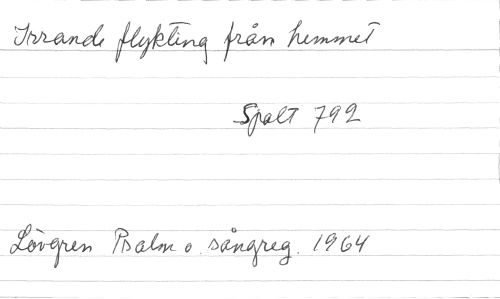 Irrande flykting från hemmet
Spalt 792
Lövgren Psalm o. sångreg. 1964